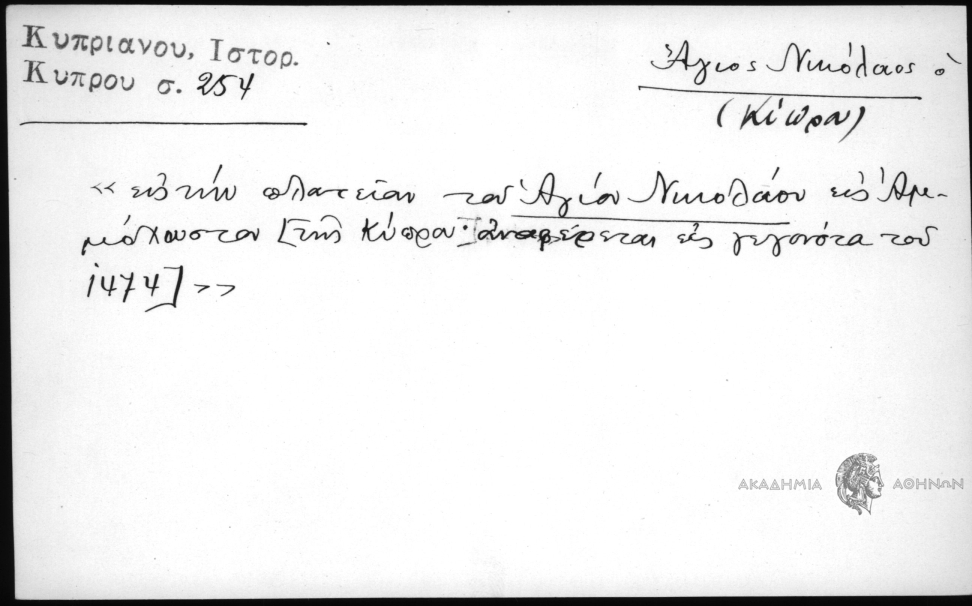 Κυπριανου, Ιστορ.
Κυπρου σ. 254
Ἅγιος Νικόλαος ὁ
(Κύπρου)
« εἰς τὴν πλατεῖαν τοῦ Ἁγίου Νικολάου εἰς Ἀμ-
μόχουστον [τῆς Κύπρου· ἀναφέρεται εἰς γεγονότα τοῦ
1474] »
ΑΚΑΔΗΜΙΑ ΑΘΗΝΩΝ